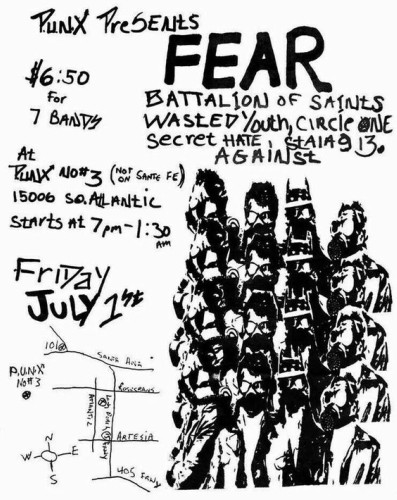 PUNX PreSENts
FEAR
$6:50
For
7 BANDS
BATTALION OF SAINTS
WASTED Youth, CIRCLE ONE
Secret HATE, StA1A9 13.
AGAINST
At
PUNX NO#3 (NOT ON SANTE FE)
15006 SO. ATLANTIC
StArts At 7pm-1:30 AM
FriDay
JULY 1st
101
SANTA ANA
PUNX
NO#3
ROSECRANS
ARTESIA
405 FRWY
N
W
E
S